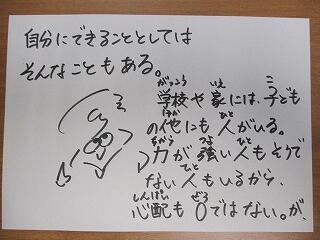 自分にできることとしては
そんなこともある。
学校や家には、子ども
の他にも人がいる。
力が強い人もそうで
ない人もいるから、
心配も0ではない。が、
がっこう いえ こ
ほか ひと
ちから つよ ひと
ひと
しんぱい ぜろ